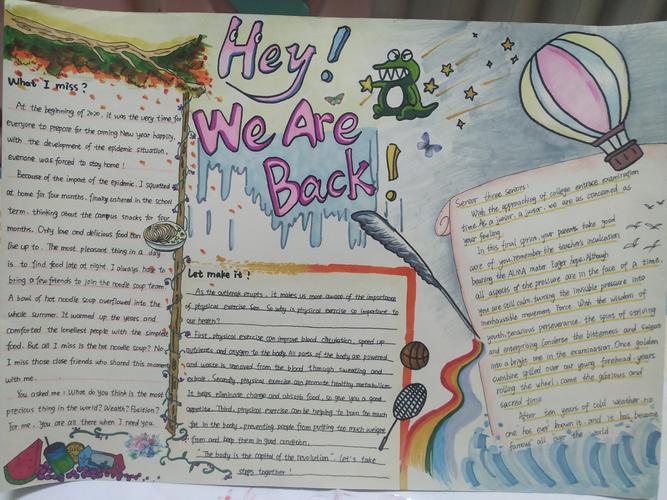 Hey!
We Are
Back!
What I miss?
At the beginning of 2020, it was the very time for
everyone to prepare for the coming New year happily,
with the development of the epidemic situation,
everyone was forced to stay home!
Because of the impact of the epidemic, I squatted
at home for four months, finally ushered in the school
term, thinking about the campus snacks for four
months. Only love and delicious food can
live up to. The most pleasant thing in a day
is to find food late at night. I always to
bring a few friends to join the noodle soup team.
A bowl of hot noodle soup overflowed into the
whole summer. It warmed up the years and
comforted the loneliest people with the simplest
food. But all I miss is the hot noodle soup? No
I miss those close friends who shared this moment
with me.
You asked me: What do you think is the most
precious thing in the world? Wealth? Position?
For me, You are all there when I need you.
Let make it!
As the outbreak erupts, it makes us more aware of the importance
of physical exercise. So why is physical exercise so important to
our health?
First, physical exercise can improve blood circulation, speed up
nutrients and oxygen to the body. All parts of the body are powered
and waste is removed from the blood through sweating and
exhale. Secondly, physical exercise can promote healthy metabolism.
It helps eliminate change and absorb food, so give you a good
appetite. Third, physical exercise can be helping to burn too much
fat in the body, preventing people from putting too much weight
from and keep them in good condition.
"The body is the capital of the revolution". Let's take
steps together!
Senior three seniors:
With the approaching of college entrance examination
time. As a junior, a junior we are as concerned as
your feeling.
In this final sprint your parents take good
care of you, remember the teacher's inculcation
bearing the ALMA mater Eager hope. Although
all aspects of the pressure are in the face of a time,
you are still calm, turning the invisible pressure into
inexhaustible movement Force. With the wisdom of
youth, tenacious perseverance, the spirit of striving
and enterprising, Condense the bitterness and
into a bright one in the examination. Once golden
sunshine spilled over our young forehead, years
rolling the wheel, came the glorious and
sacred time
After ten years of cold weather no
one has ever known it, and it has become
famous all over the world